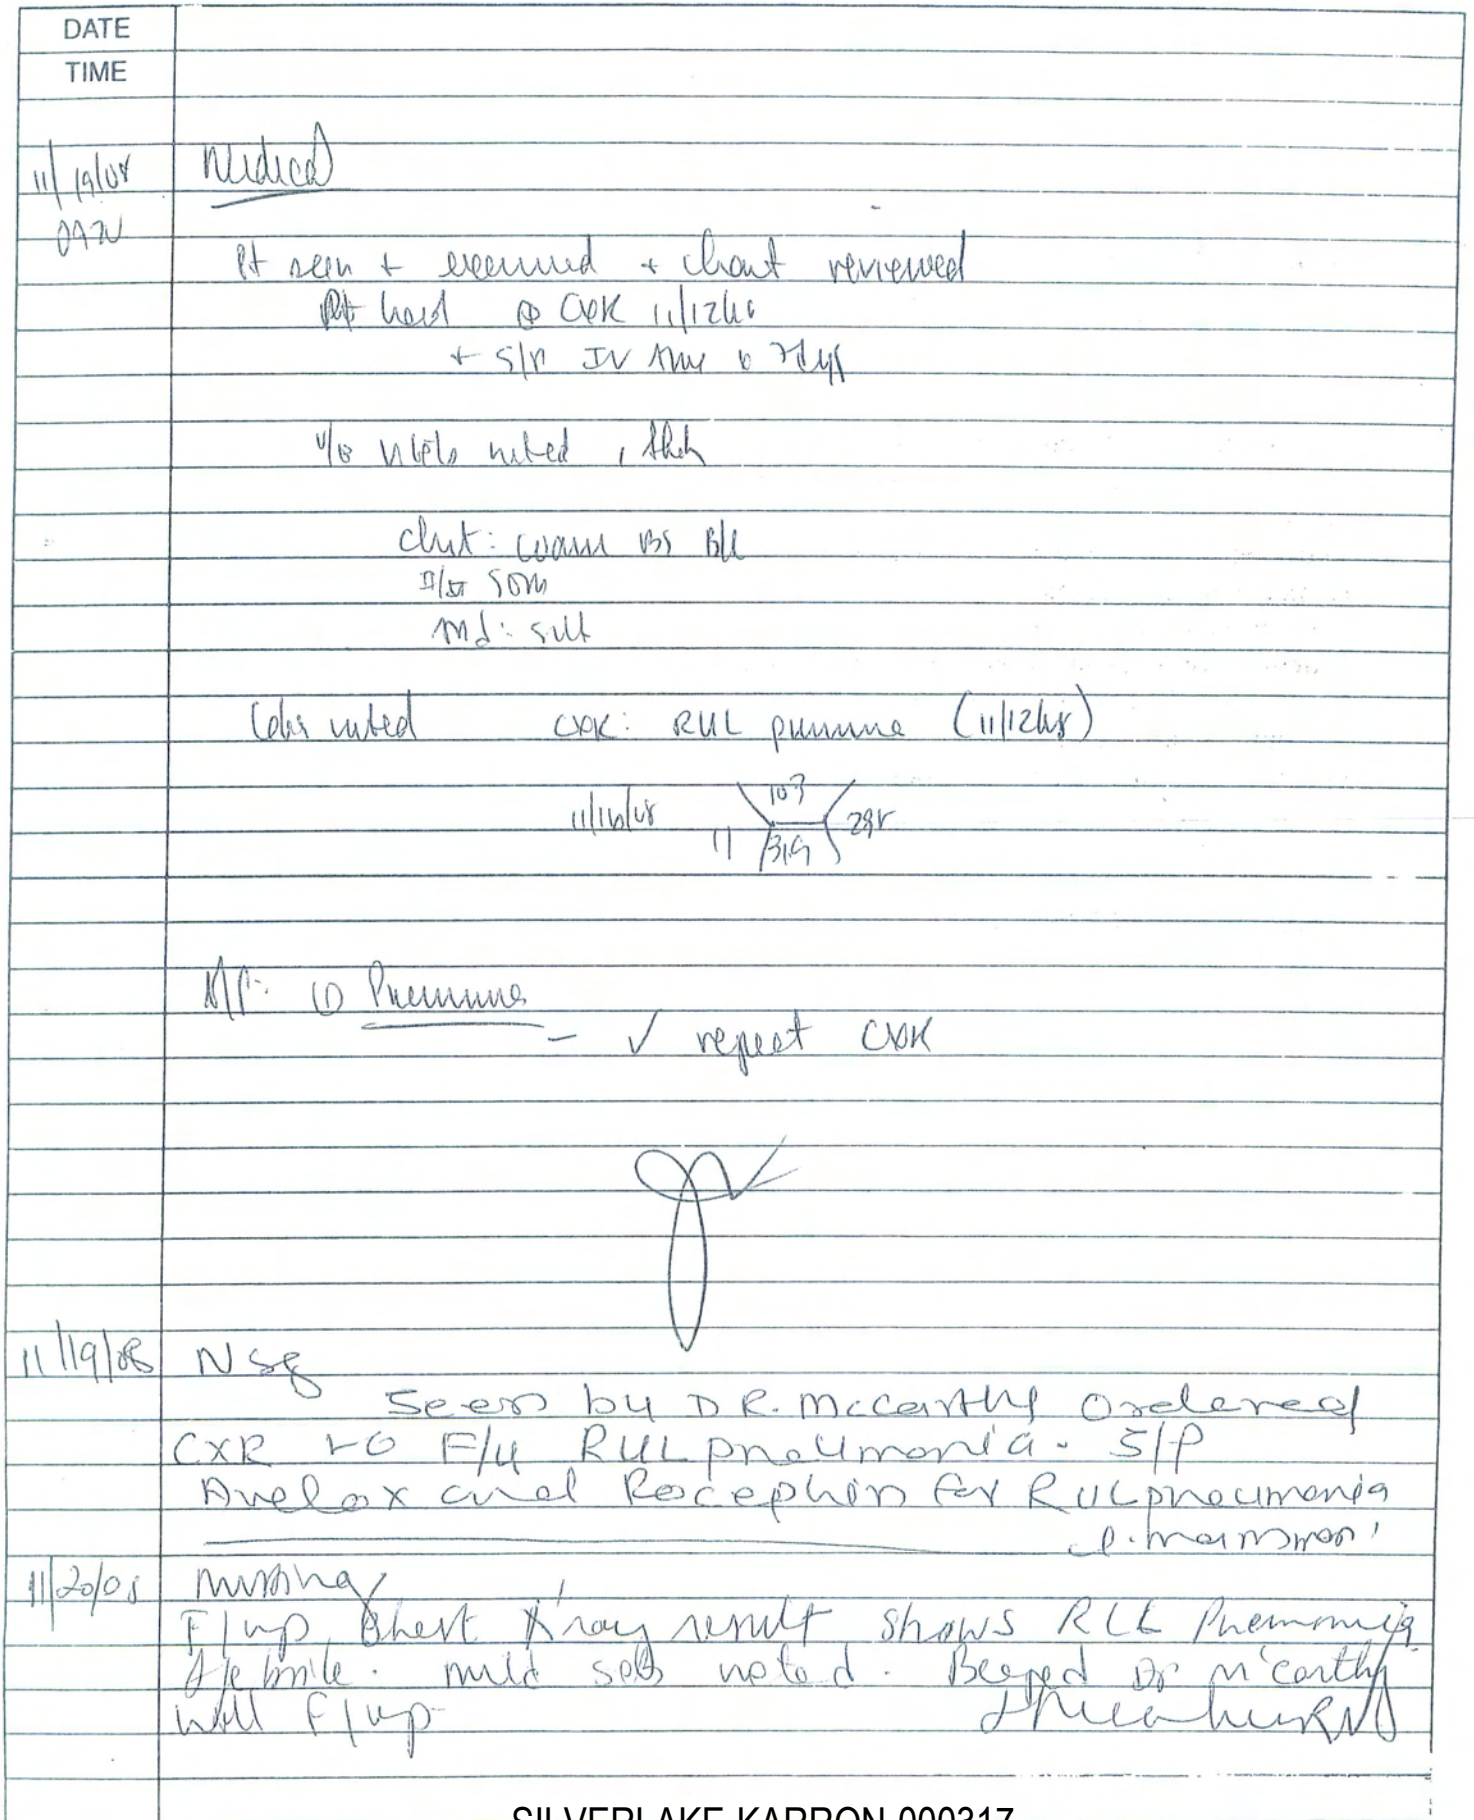 DATE
TIME
11/19/08 Medical
Pt seen + examined + chart reviewed
Pt had ⊕ CXR 11/12/08
+ S/P IV
noted,
BS
Labs noted CXR: RUL pneumonia (11/12/08)
103
11/16/08 11 31.9 298
A/P: ① Pneumonia
- ✓ repeat CXR
11/19/08 Nsg
Seen by DR. McCarthy Ordered
CXR to F/U RUL pneumonia. S/P
Avelox and Rocephin for RUL pneumonia
11/20/08 nursing
F/up Chest X'ray result shows RLL Pnemonia
Afebrile. mild sob noted. Beeped Dr M'Carthy
will F/up RN
SILVERLAKE-KARRON-000317